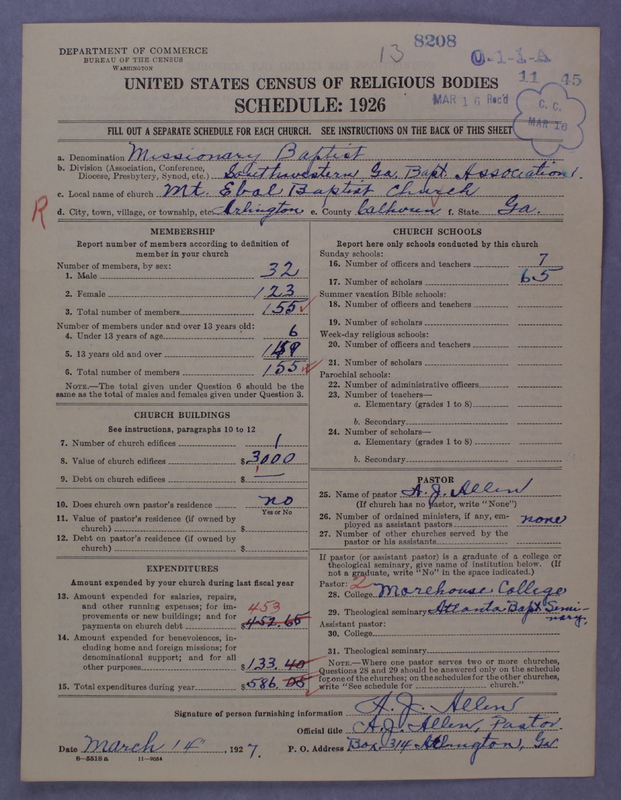 DEPARTMENT OF COMMERCE
BUREAU OF THE CENSUS
WASHINGTON
13
8208
0-1-1-A
11 45
MAR 16 Rec'd
C. C.
MAR 16
UNITED STATES CENSUS OF RELIGIOUS BODIES
SCHEDULE: 1926
FILL OUT A SEPARATE SCHEDULE FOR EACH CHURCH. SEE INSTRUCTIONS ON THE BACK OF THIS SHEET
a. Denomination Missionary Baptist
b. Division (Association, Conference, Diocese, Presbytery, Synod, etc.) Southwestern Ga. Bapt. Association.
c. Local name of church Mt. Ebal Baptist Church
R
d. City, town, village, or township, etc. Arlington e. County Calhoun f. State Ga.
MEMBERSHIP
Report number of members according to definition of
member in your church
Number of members, by sex:
1. Male 32
2. Female 123
3. Total number of members 155
Number of members under and over 13 years old:
4. Under 13 years of age 6
5. 13 years old and over 149
6. Total number of members 155
NOTE.—The total given under Question 6 should be the
same as the total of males and females given under Question 3.
CHURCH BUILDINGS
See instructions, paragraphs 10 to 12
7. Number of church edifices 1
8. Value of church edifices $3000
9. Debt on church edifices $ —
10. Does church own pastor's residence no
Yes or No
11. Value of pastor's residence (if owned by
church) $
12. Debt on pastor's residence (if owned by
church) $
EXPENDITURES
Amount expended by your church during last fiscal year
13. Amount expended for salaries, repairs,
and other running expenses; for im- 453
provements or new buildings; and for
payments on church debt $452.65
14. Amount expended for benevolences, in-
cluding home and foreign missions; for
denominational support; and for all
other purposes $133.40
15. Total expenditures during year $586.05
CHURCH SCHOOLS
Report here only schools conducted by this church
Sunday schools:
16. Number of officers and teachers 7
17. Number of scholars 65
Summer vacation Bible schools:
18. Number of officers and teachers
19. Number of scholars
Week-day religious schools:
20. Number of officers and teachers
21. Number of scholars
Parochial schools:
22. Number of administrative officers
23. Number of teachers—
a. Elementary (grades 1 to 8)
b. Secondary
24. Number of scholars—
a. Elementary (grades 1 to 8)
b. Secondary
PASTOR
25. Name of pastor A. J. Allen
(If church has no pastor, write "None")
26. Number of ordained ministers, if any, em-
ployed as assistant pastors none
27. Number of other churches served by the
pastor or his assistants
If pastor (or assistant pastor) is a graduate of a college or
theological seminary, give name of institution below. (If
not a graduate, write "No" in the space indicated.)
Pastor: 2
28. College Morehouse College
29. Theological seminary Atlanta Bapt. Semi-
nary.
Assistant pastor:
30. College
31. Theological seminary
NOTE.—Where one pastor serves two or more churches,
Questions 28 and 29 should be answered only on the schedule
for one of the churches; on the schedules for the other churches,
write "See schedule for church."
Signature of person furnishing information A. J. Allen
Official title A. J. Allen, Pastor.
Date March 14, 1927. P. O. Address Box 314 Arlington, Ga
8—5518 a 11—9054